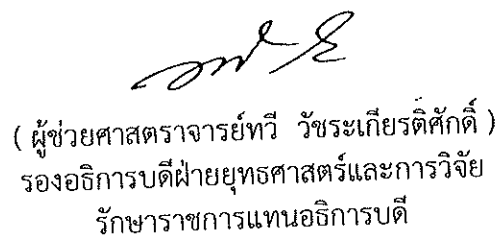 ( ผู้ช่วยศาสตราจารย์ทวี วัชระเกียรติศักดิ์ )
รองอธิการบดีฝ่ายยุทธศาสตร์และการวิจัย
รักษาราชการแทนอธิการบดี